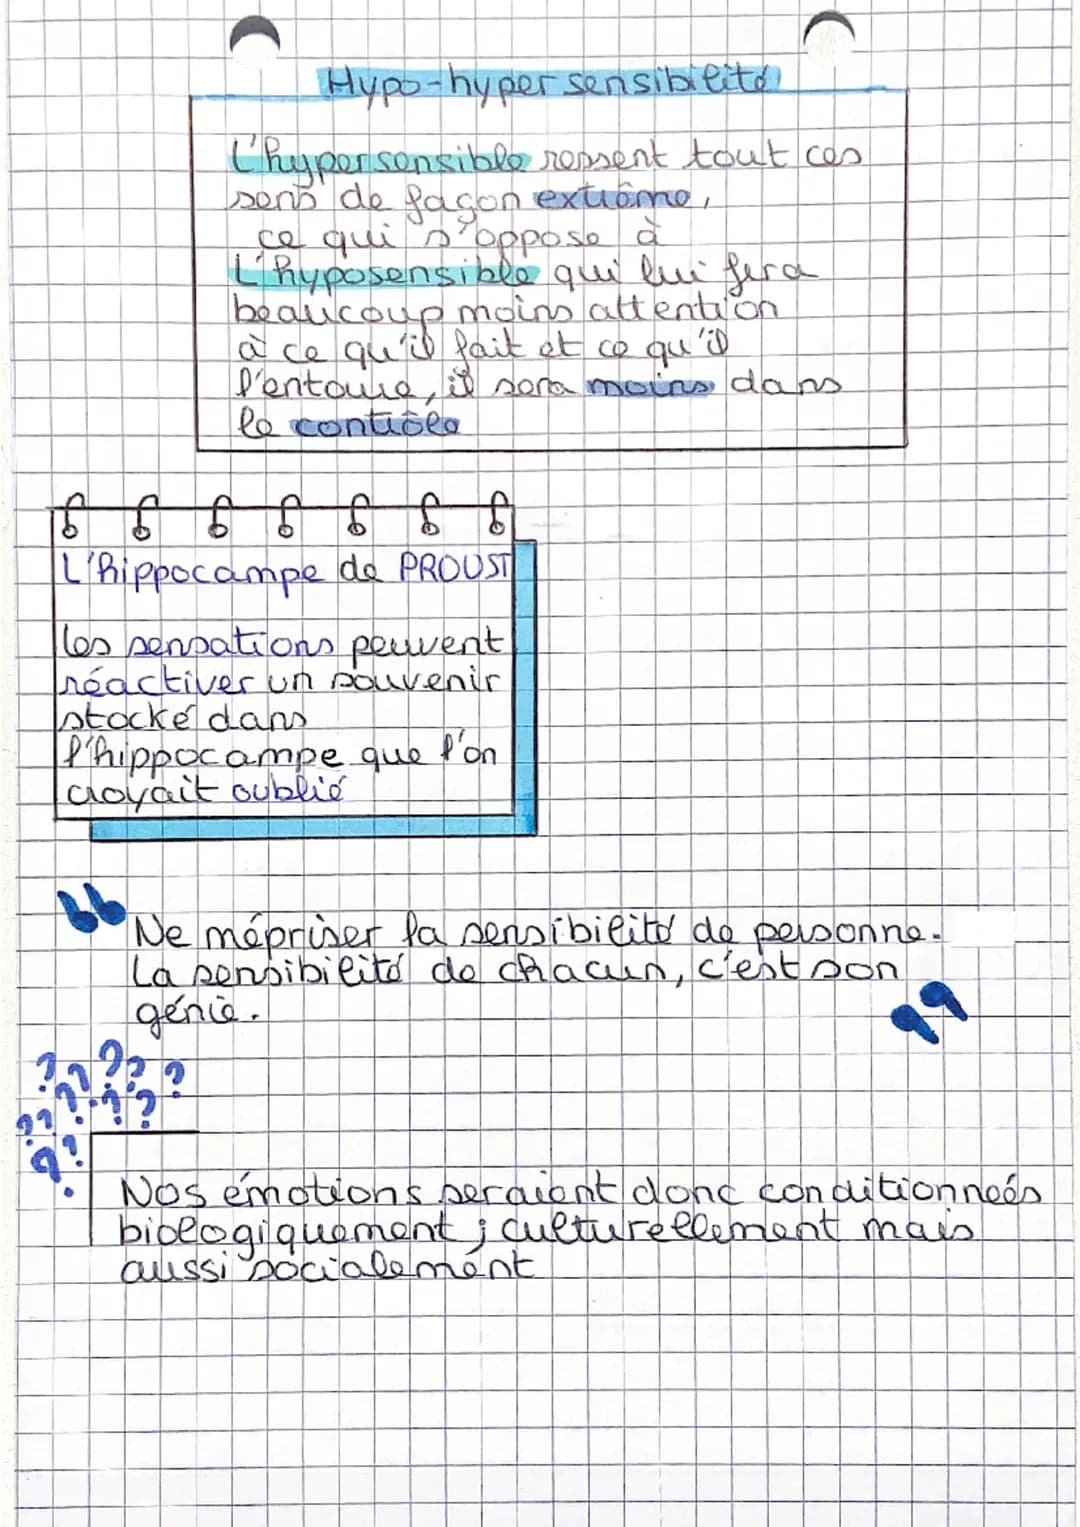 Hypo-hyper sensibilité
L'hypersensible ressent tout ces
sens de façon extrême,
ce qui s'oppose à
L'hyposensible qui lui fera
beaucoup moins attention
à ce qu'il fait et ce qu'il
l'entoure, il sera moins dans
le contrôle
L'hippocampe de PROUST
les sensations peuvent
réactiver un souvenir
stocké dans
l'hippocampe que l'on
croyait oublié
" Ne mépriser la sensibilité de personne.
La sensibilité de chacun, c'est son
génie. "
? ? ? ? ? ? ? ? ? ? ? ? ?
Nos émotions seraient donc conditionneés
biologiquement ; culturellement mais
aussi socialement